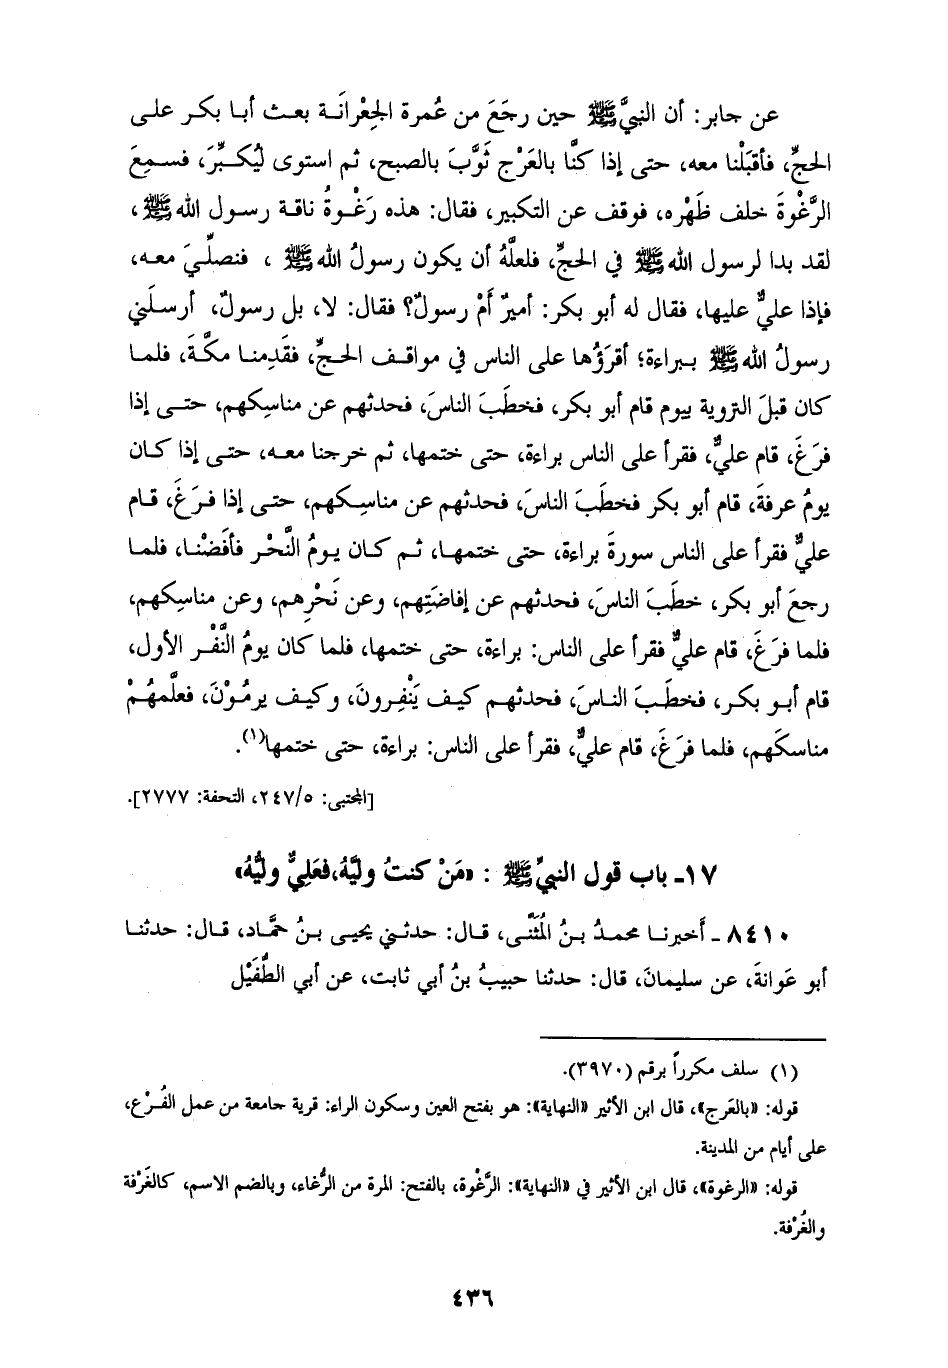 عن جابر: أن النبيَّ ﷺ حين رجَعَ من عُمرة الجِعْرانَة بعث أبا بكر على
الحجِّ، فأقبَلْنا معه، حتى إذا كنَّا بالعَرْج ثَوَّبَ بالصبح، ثم استوى ليُكبِّرَ، فسمِعَ
الرَّغْوةَ خلف ظَهْره، فوقف عن التكبير، فقال: هذه رَغْوةُ ناقة رسول الله ﷺ،
لقد بدا لرسول الله ﷺ في الحجِّ، فلعلَّهُ أن يكون رسولُ الله ﷺ ، فنصلِّيَ معه،
فإذا عليٌّ عليها، فقال له أبو بكر: أميرٌ أَمْ رسولٌ؟ فقال: لا، بل رسولٌ، أرسلَني
رسولُ الله ﷺ ببراءة؛ أقرَؤُها على الناس في مواقف الحجِّ، فقَدِمنا مكَّةَ، فلما
كان قبلَ التروية بيوم قام أبو بكر، فخطَبَ الناسَ، فحدثهم عن مناسِكهم، حتى إذا
فرَغَ، قام عليٌّ، فقرأ على الناس براءة، حتى ختمها، ثم خرجنا معه، حتى إذا كان
يومُ عرفةَ، قام أبو بكر فخطَبَ الناسَ، فحدثهم عن مناسِكهم، حتى إذا فرَغَ، قام
عليٌّ فقرأ على الناس سورةَ براءة، حتى ختمها، ثم كان يومُ النَّحْر فأفَضْنا، فلما
رجعَ أبو بكر، خطَبَ الناسَ، فحدثهم عن إفاضَتِهم، وعن نَحْرِهم، وعن مناسكهم،
فلما فرَغَ، قام عليٌّ فقرأ على الناس: براءة، حتى ختمها، فلما كان يومُ النَّفْر الأول،
قام أبو بكر، فخطَبَ الناسَ، فحدثهم كيف يَنْفِرونَ، وكيف يرمُوْنَ، فعلَّمهُمْ
مناسكَهم، فلما فرَغَ، قام عليٌّ، فقرأ على الناس: براءة، حتى ختمها(١).
[المجتبى: ٢٤٧/٥، التحفة: ٢٧٧٧].
١٧ـ باب قول النبيِّ ﷺ : «مَنْ كنتُ وليَّهُ، فعَليٌّ وليُّهُ»
٨٤١٠ ـ أخبرنا محمدُ بنُ المُثَنَّى، قال: حدثني يحيى بنُ حمَّاد، قال: حدثنا
أبو عَوانةَ، عن سليمانَ، قال: حدثنا حبيبُ بنُ أبي ثابت، عن أبي الطُّفَيْل
(١) سلف مكرراً برقم (٣٩٧٠).
قوله: «بالعَرج»، قال ابن الأثير «النهاية»: هو بفتح العين وسكون الراء: قرية جامعة من عمل الفُرْع،
على أيام من المدينة.
قوله: «الرغوة»، قال ابن الأثير في «النهاية»: الرَّغْوة، بالفتح: المرة من الرُّغاء، وبالضم الاسم، كالغَرْفة
والغُرْفة.
٤٣٦